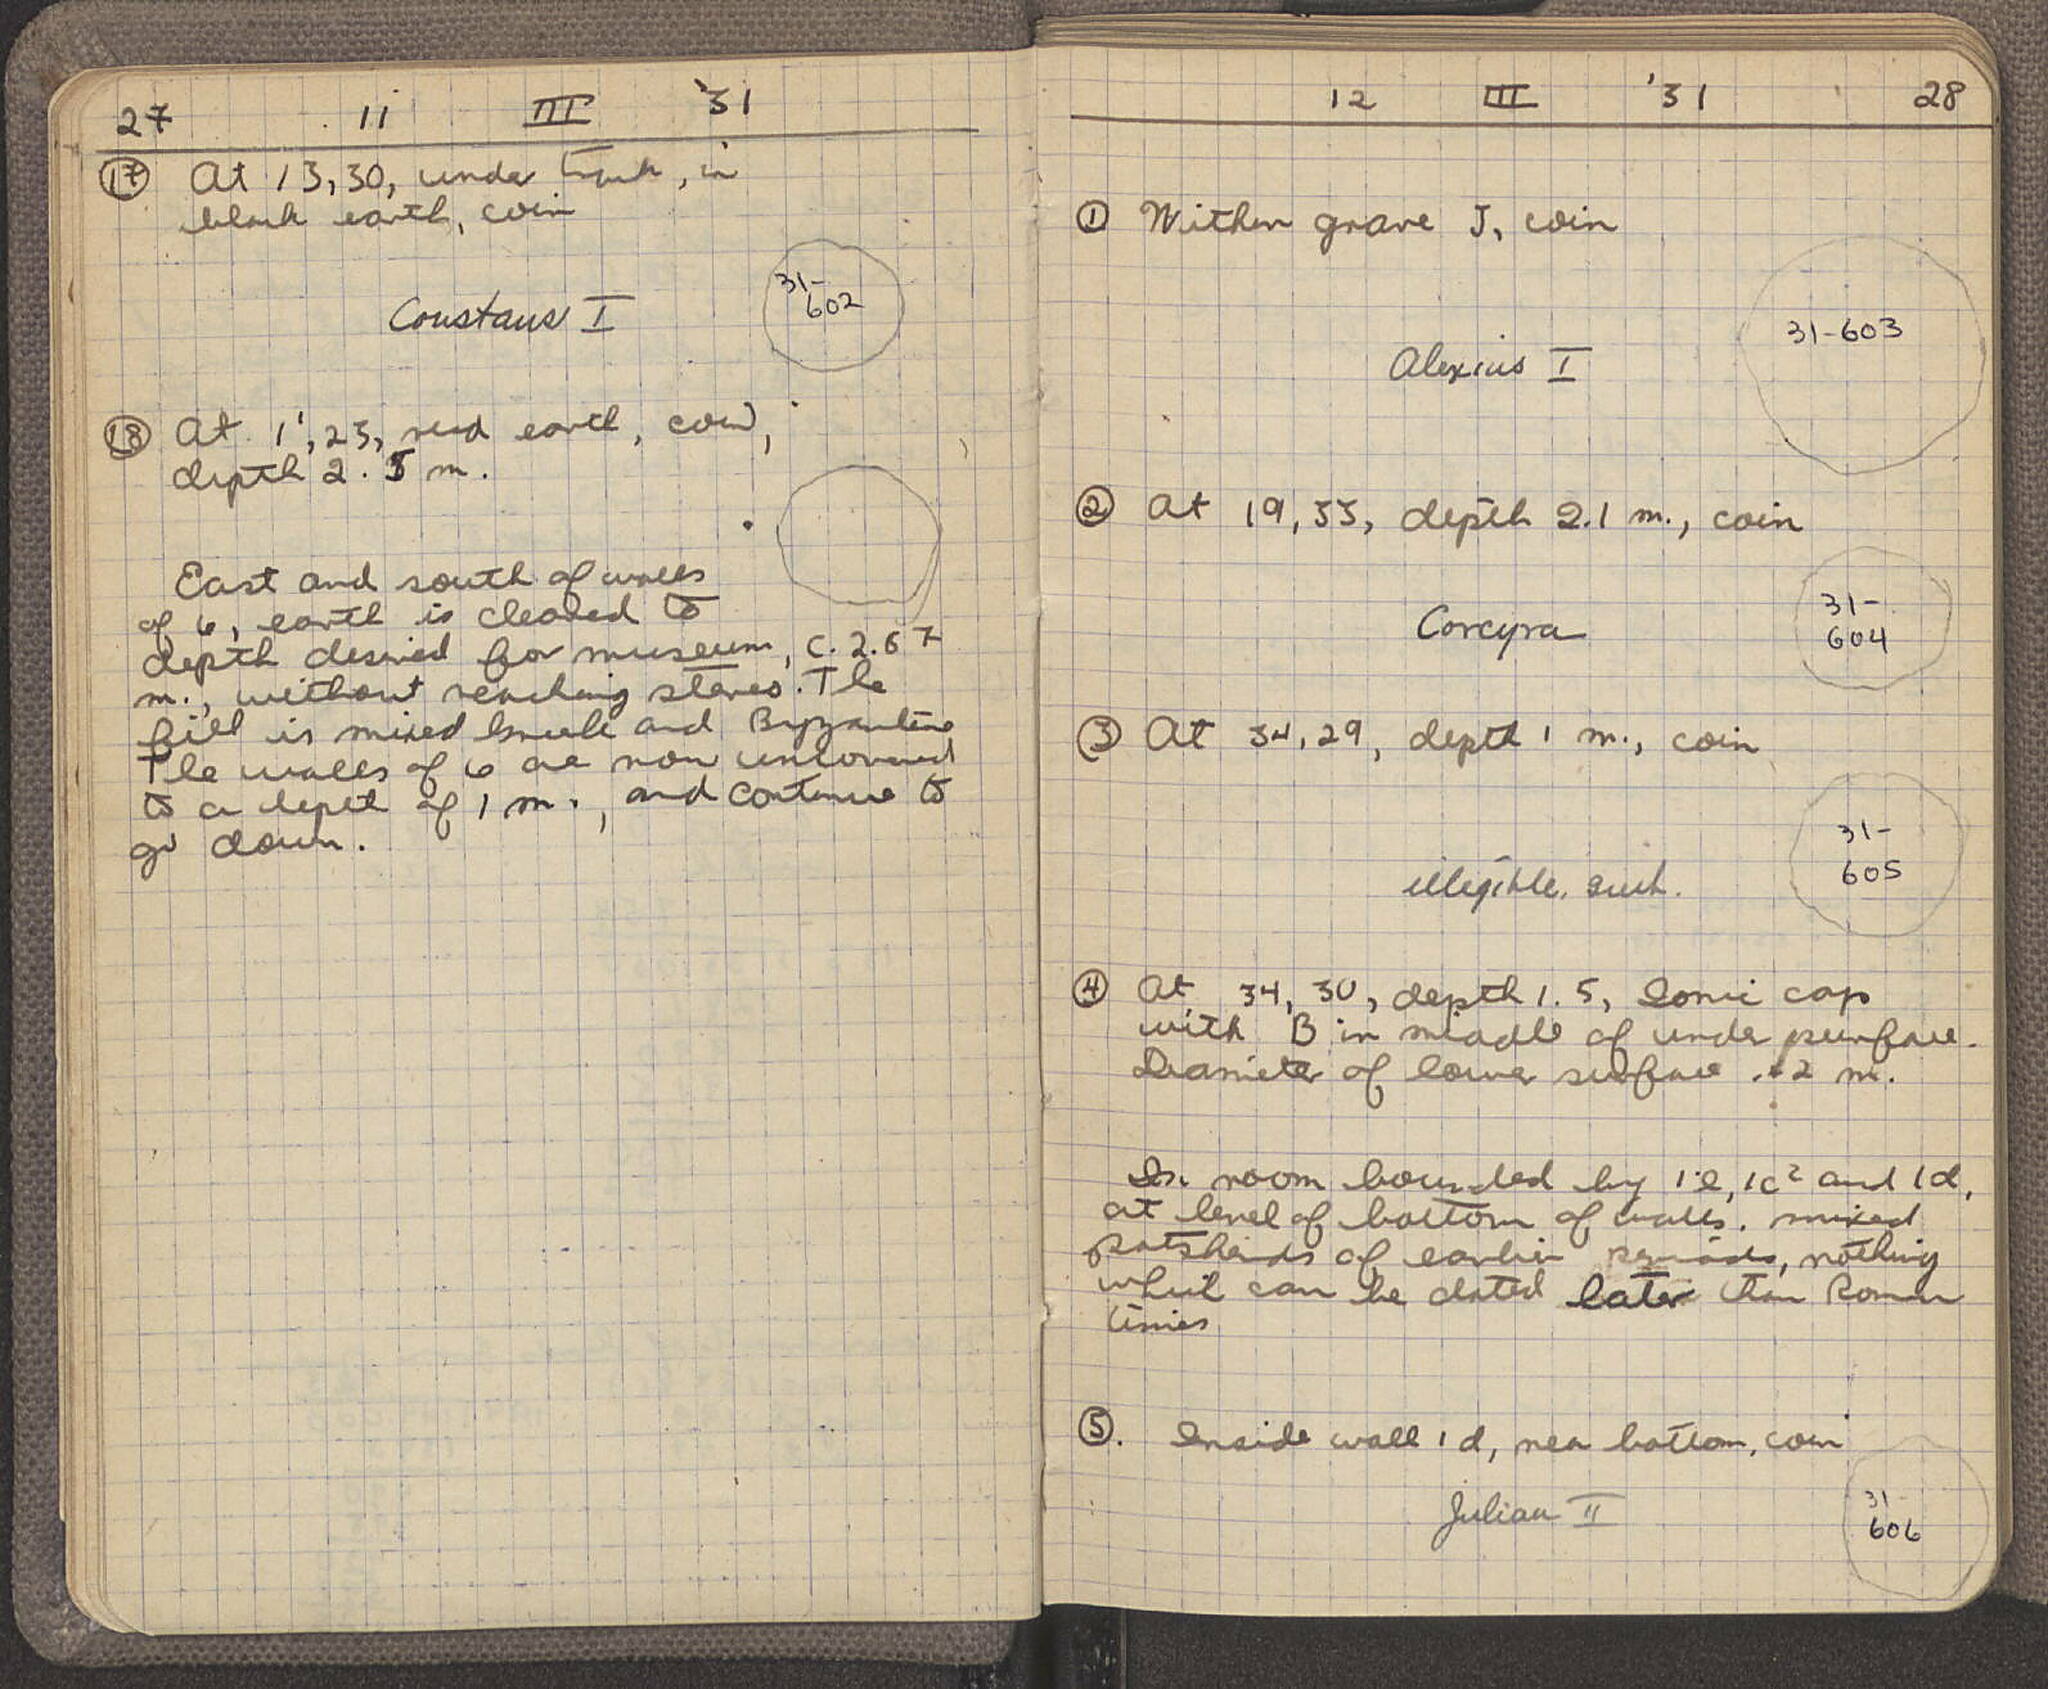 27 11 III '31
⑰ At 13,30, under trunk, in
black earth, coin
31-
602
Constans I
⑱ At 1',23, red earth, coin,
depth 2.5 m.
East and south of walls
of 6, earth is cleared to
depth desired for museum, c. 2.67
m., without reaching stereo. The
fill is mixed Greek and Byzantine
The walls of 6 are now uncovered
to a depth of 1 m., and continue to
go down.
12 III '31 28
① Within grave J, coin
31-603
Alexius I
② At 19,33, depth 2.1 m., coin
31-
604
Corcyra
③ At 34,29, depth 1 m., coin
31-
605
illegible.
④ At 34,30, depth 1.5, Ionic cap
with B in middle of under surface.
Diameter of lower surface .2 m.
In room bounded by 1e, 1c² and 1d,
at level of bottom of walls, mixed
potsherds of earlier periods, nothing
which can be dated later than Roman
times
⑤. Inside wall 1d, near bottom, coin
31
606
Julian II